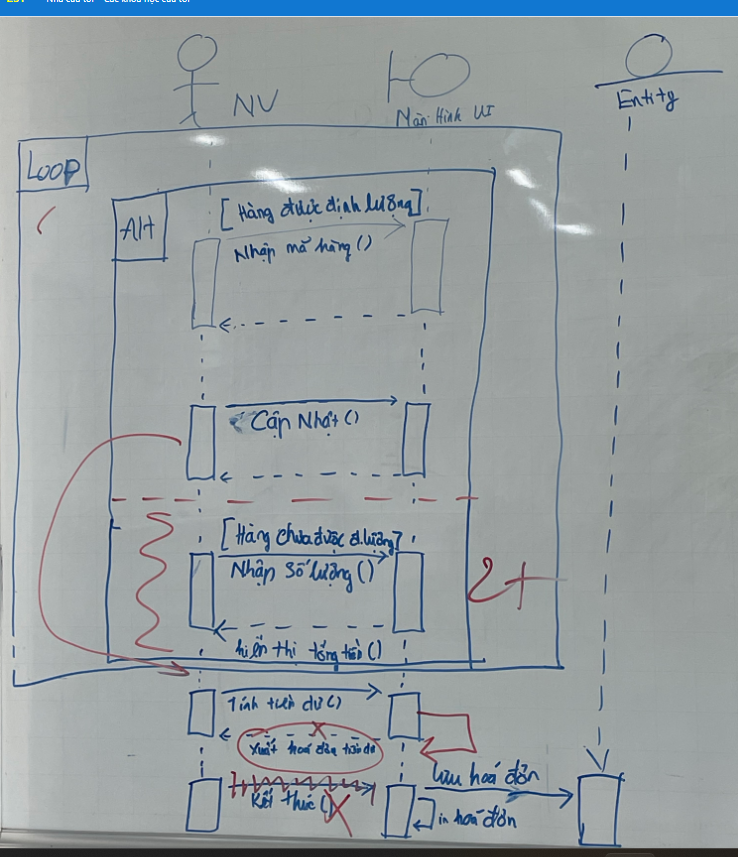 NV
Màn Hình UI
Entity
LOOP
Alt
[Hàng được định lượng]
Nhập mã hàng ()
Cập Nhật ()
[Hàng chưa được đ.lượng]
Nhập Số lượng ()
2+
hiển thị tổng tiền ()
Tính tiền dư ()
X
Xuất hoá đơn
lưu hoá đơn
Kết thúc ()
X
in hoá đơn